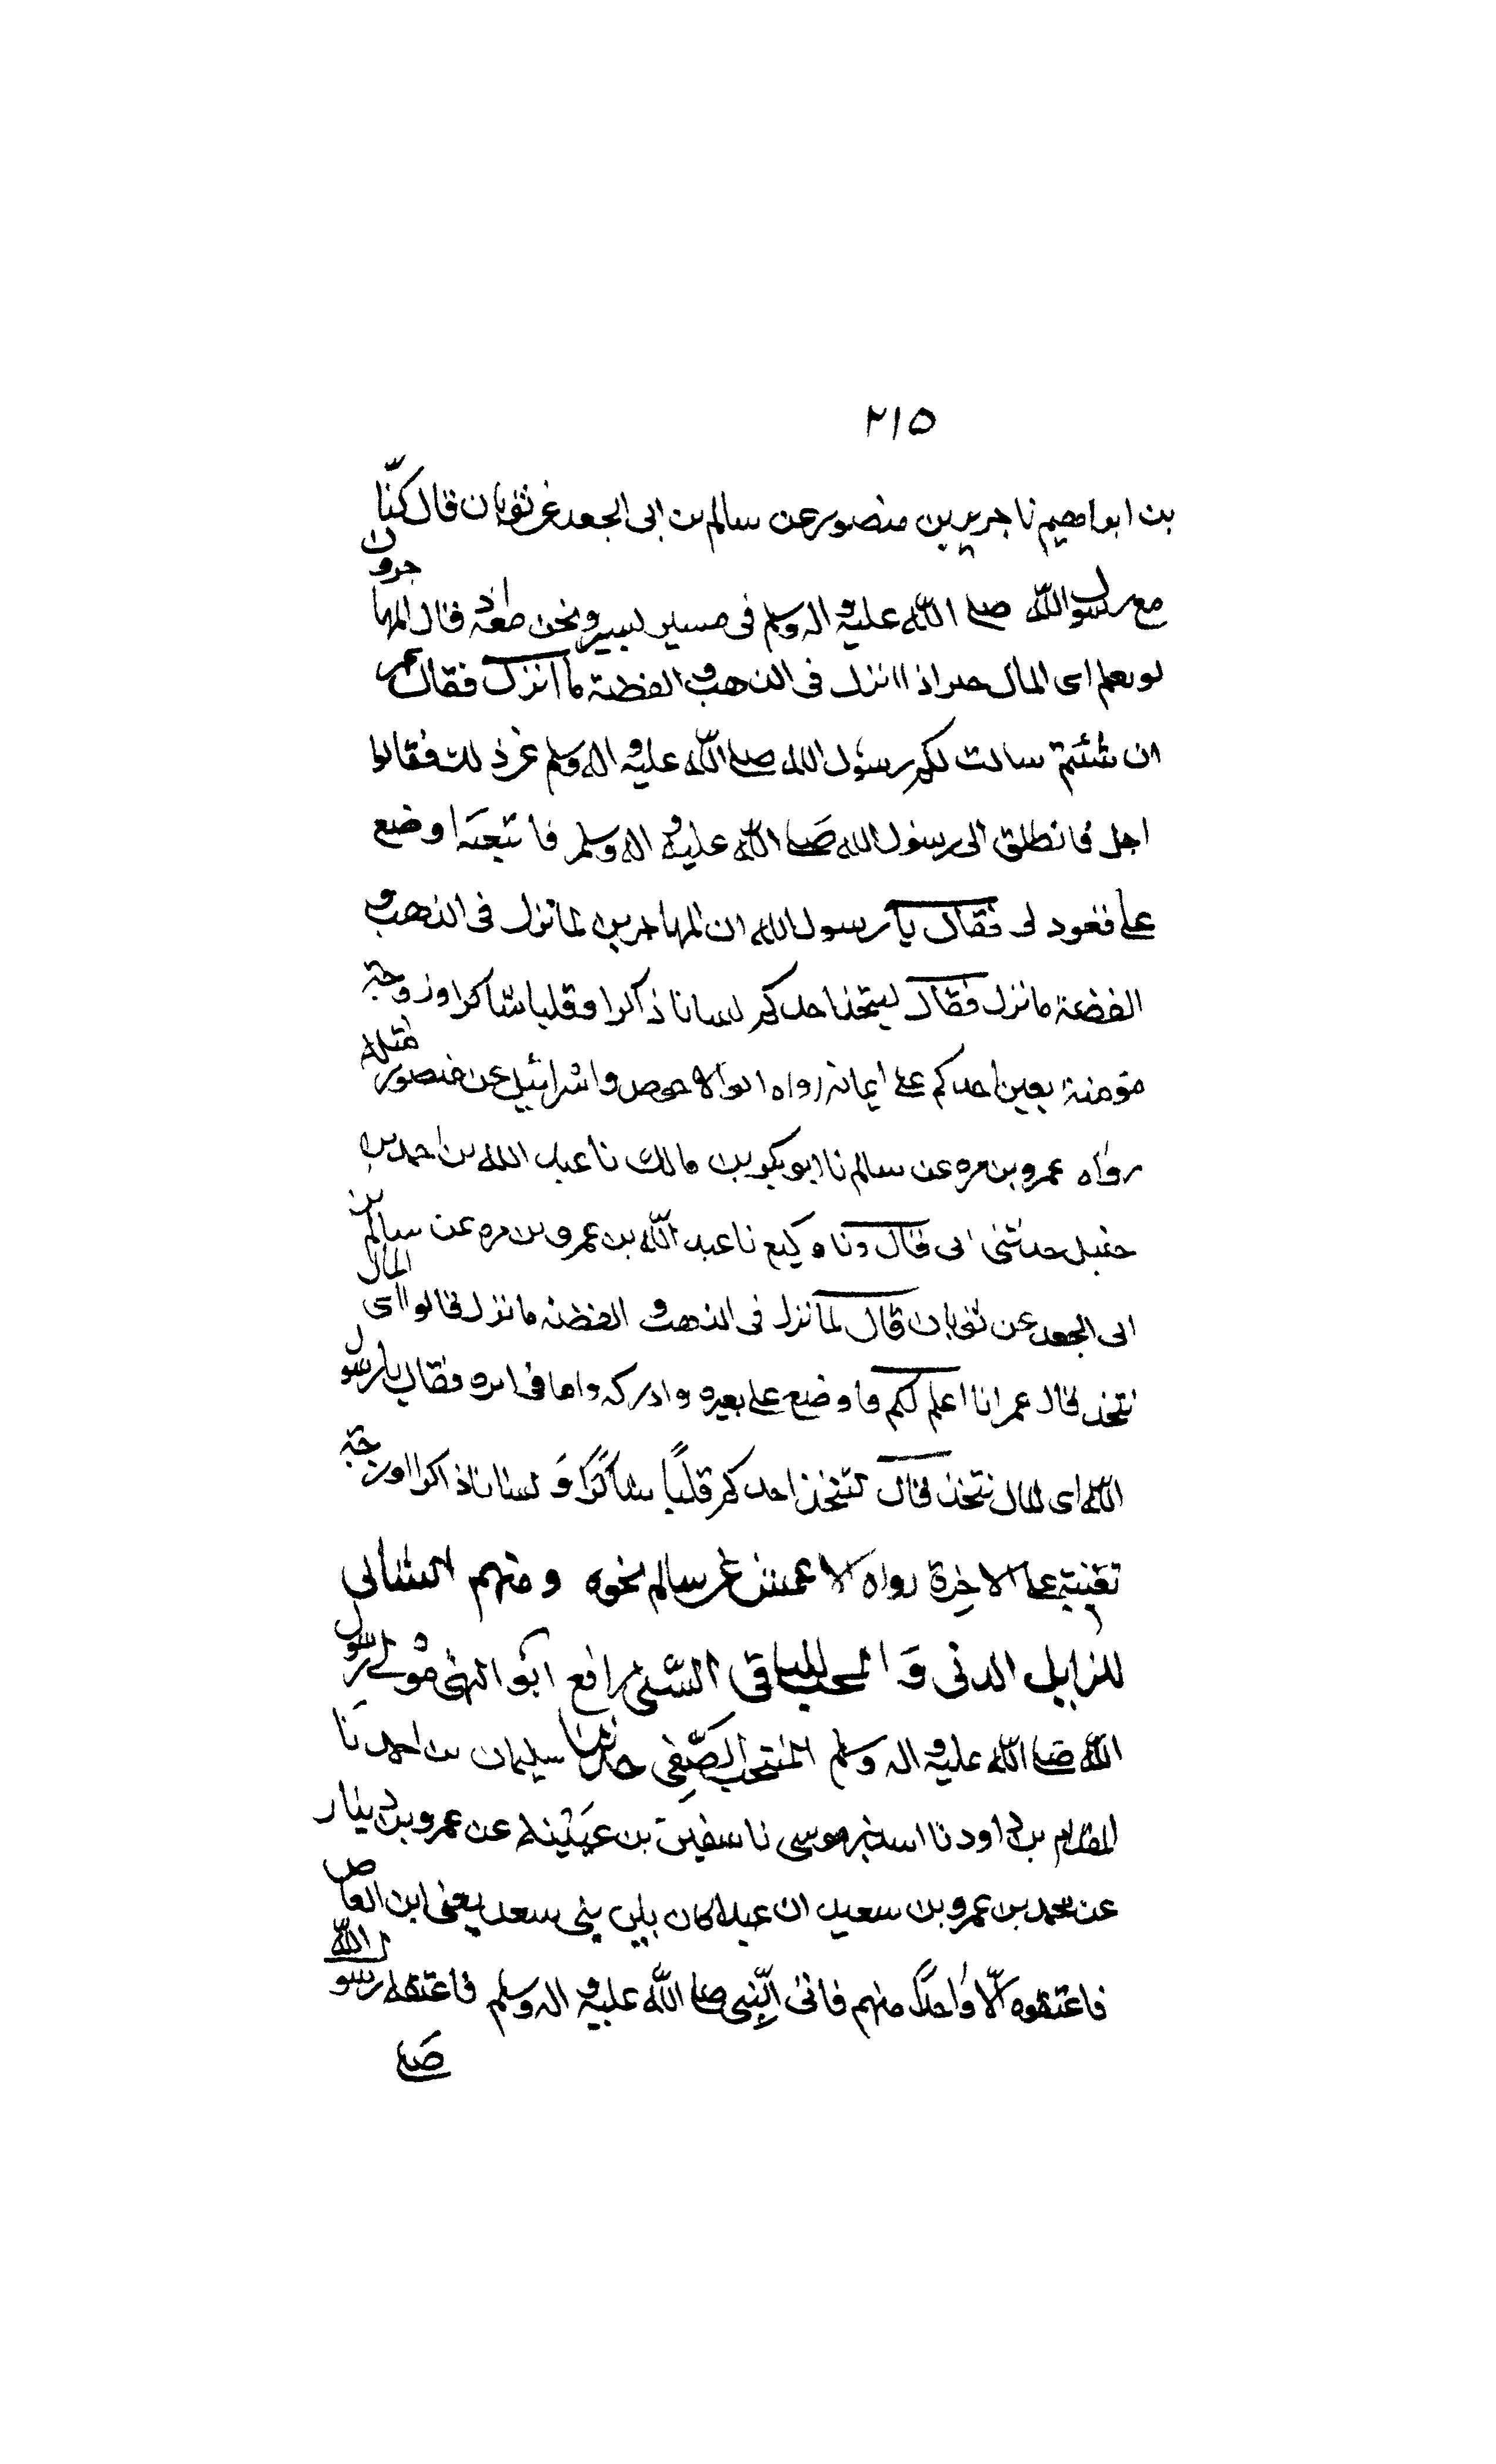 ٢١٥
بن ابراهيم نا جرير بن منصور عن سالم بن ابى الجعد عن ثوبان قال كنّا
مع رسول الله صلے الله عليه واله وسلم فى مسير نسير ونحن معه قال المهاجرون
لو نعلم اى المال خير اذ انزل فى الذهب والفضة ما انزل فقال عمر
ان شئتم سالت لكم رسول الله صلے الله عليه واله وسلم عن ذلك فقالوا
اجل فانطلق الى رسول الله صَلے الله عليه واله وسلم فاتبعته اوضع
علے قعود لى فقال يا رسول الله ان المهاجرين لما نزل فى الذهب و
الفضة ما نزل فقال ليتخذ احدكم لسانا ذاكرا وقلبا شاكرا وزوجة
مؤمنة تعين احدكم علے ايمانه رواه ابو الاحوص واسرائيل عن منصور مثله
رواه عمرو بن مره عن سالم نا ابو بكر بن مالك نا عبد الله بن احمد بن
حنبل حدثنى ابى قال ونا وكيع نا عبد الله بن عمرو بن مره عن سالم بن
ابى الجعد عن ثوبان قال لما نزل فى الذهب و الفضة ما نزل قالوا اى المال
نتخذ قال عمر انا اعلم لكم فاوضع علے بعيره وادركه وانا فى اثره فقال يا رسول
الله اى المال نتخذ قال ليتخذ احدكم قلبًا شاكرًا وَ لسانا ذاكرا وزوجة
تعينه علے الاخرة رواه الاعمش عن سالم نحوه ومنهم الشانى
للزايل الدنى وَ المحب للباقى السّنى رافع ابو البهى مولے رسول
الله صَلے الله عليه واله وسلم المنتخب الصَّفِى حدثنا سليمان بن احمد نَا
المقدام بن داود نا اسد بن موسى نا سفين بن عيَينه عن عمرو بن دينار
عن محمد بن عمرو بن سعيد ان عبدا كان بين بنى سعد يعنى ابن العاص
فاعتقوه الّا واحدًا منهم فاتى النّبِى صلے الله عليه واله وسلم فاعتقه رسول الله
صَلے